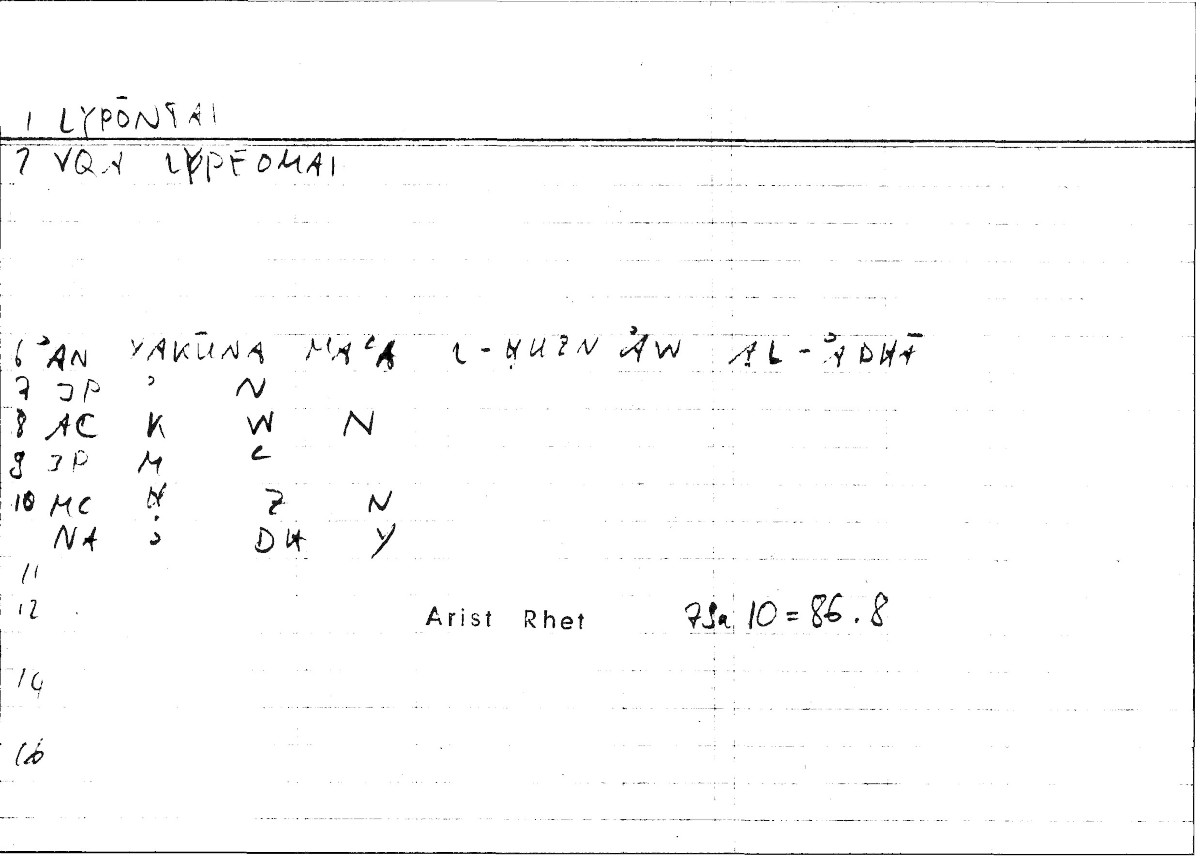 1 LYPŌNTAI
2 VQA LYPEOMAI
6 ʾAN YAKŪNA MAʿA L-ḤUZN ʾAW AL-ʾADHĀ
7 JP ʾ N
8 AC K W N
9 JP M ʿ
10 MC Ḥ Z N
NA ʾ DH Y
11
12 Arist Rhet 79a 10 = 86.8
14
16